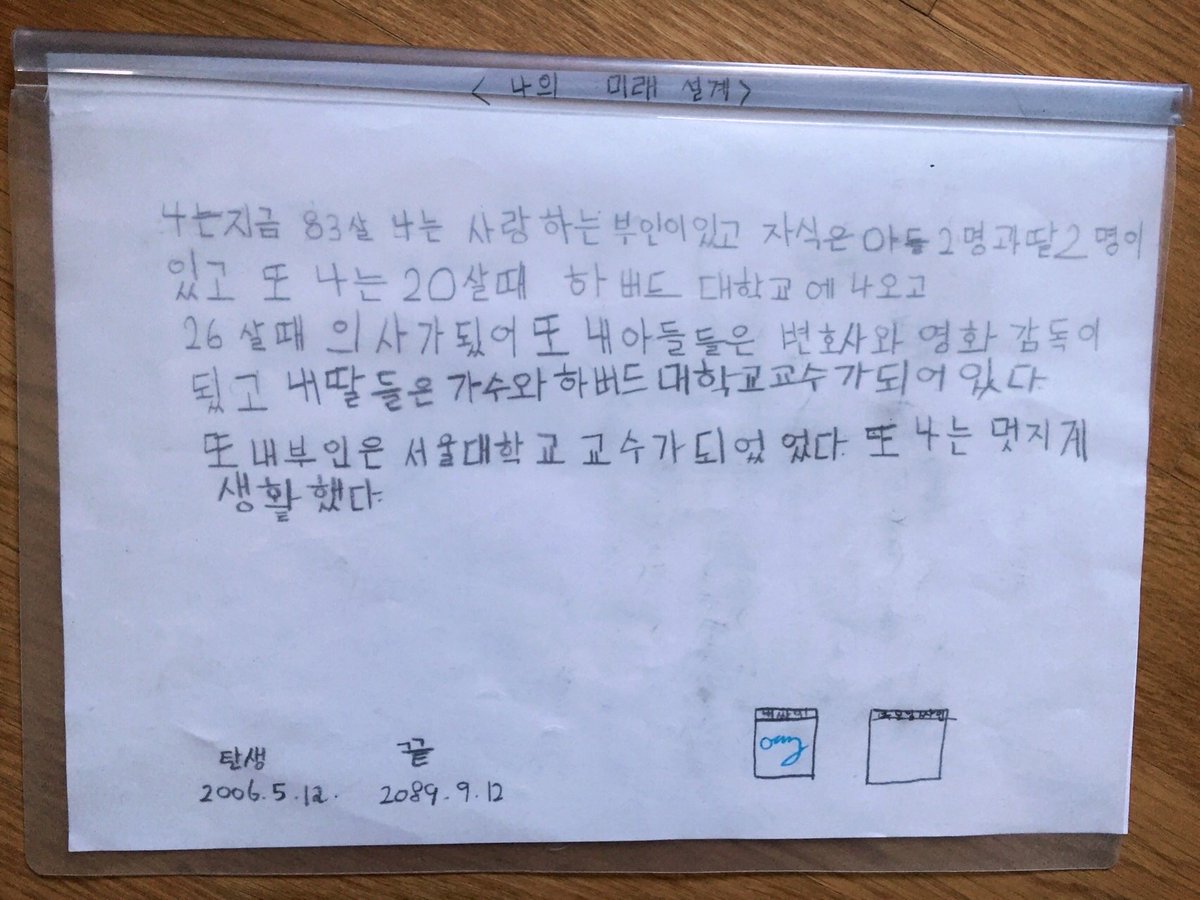 < 나의 미래 설계>
나는지금 83살 나는 사랑하는부인이있고 자식은 아들 2명과딸2명이
있고 또 나는 20살때 하버드 대학교에 나오고
26 살때 의사가됬어 또 내아들들은 변호사와 영화 감독이
됬고 내딸들은 가수와하버드대학교교수가되어있다
또 내부인은 서울대학교 교수가되었었다. 또 나는 멋지게
생홛했다.
탄생 끝
2006.5.12. 2089.9.12